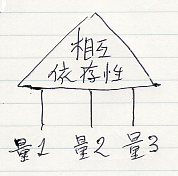 相互
依存性
量1 量2 量3